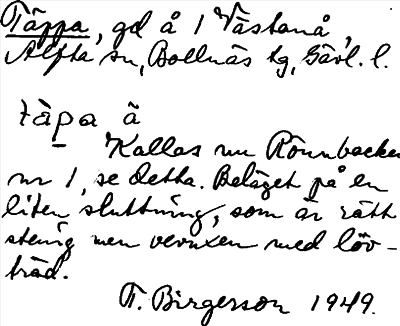 Täppa, gd å 1 Västanå,
Alfta sn, Bollnäs tg, Gävl. l.
tàpa ä
Kallas nu Rönnbacken
nr 1, se detta. Beläget på en
liten sluttning, som är rätt
stenig men vevuxen med löv-
träd.
T. Birgerson 1949.